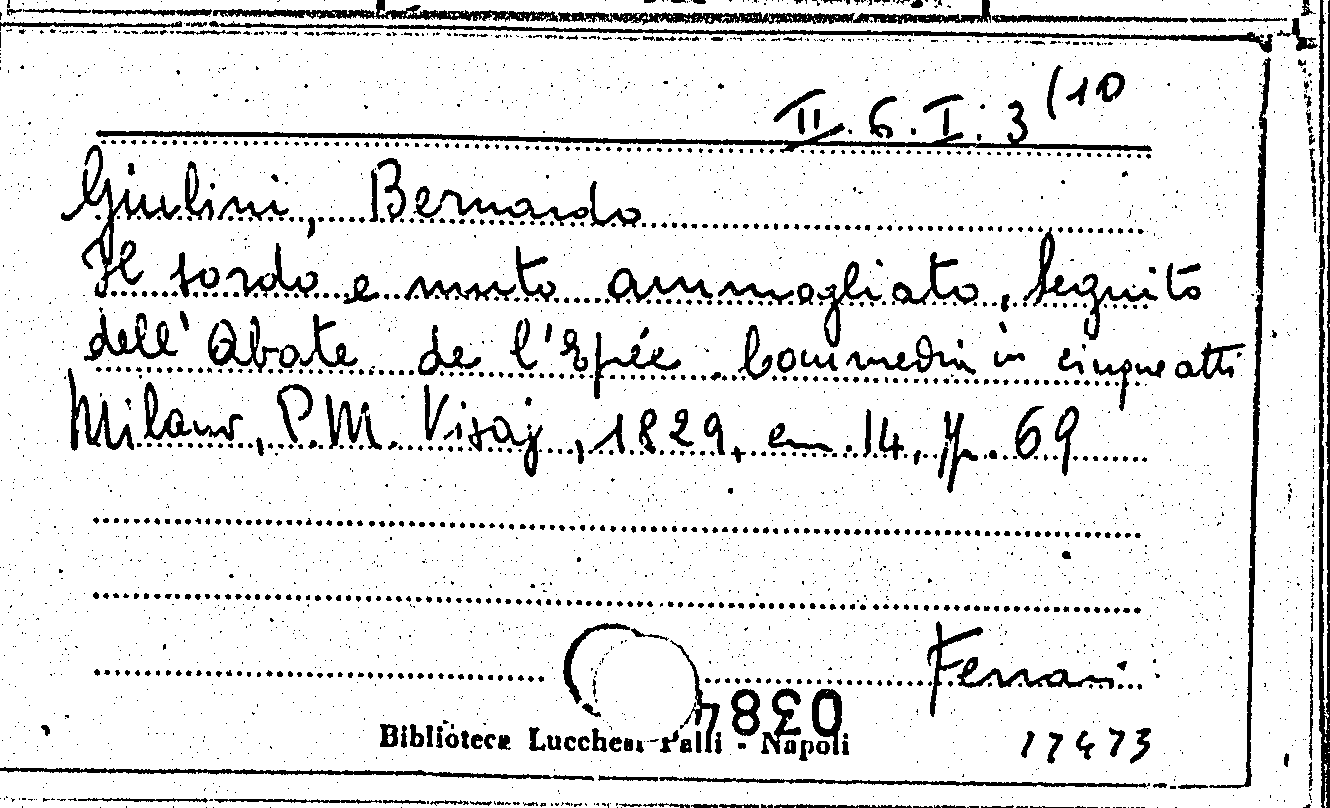 II. 6. I. 3 (10
Giulini, Bernardo
Il sordo e muto ammogliato, seguito
dell'Abate de l'Epée. Commedia in cinque atti
Milano, P. M. Visaj, 1829, cm. 14, pp. 69
Ferrari
Biblioteca Lucchesi Palli - Napoli
17473